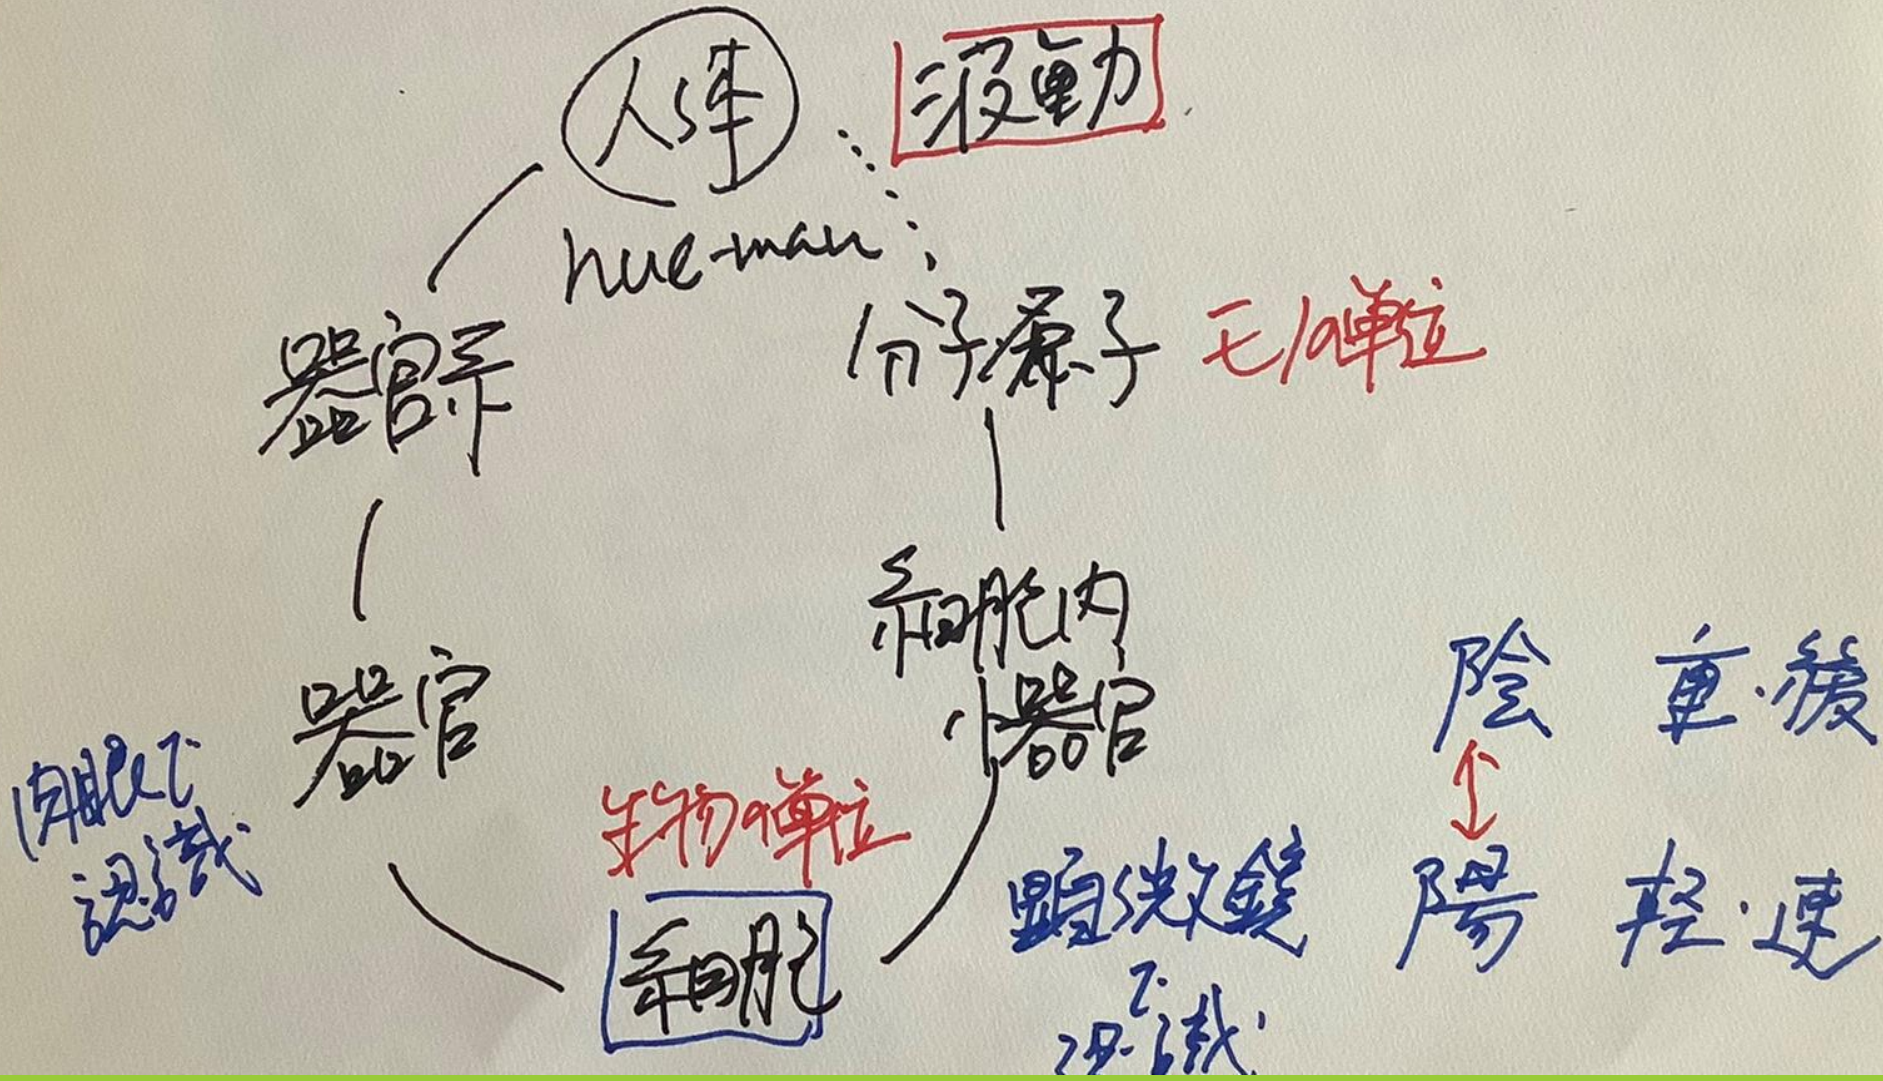 人体
波動
hue-man
器官系
分子・原子
モノの単位
細胞内
小器官
器官
肉眼で
認識
生物の単位
細胞
顕微鏡
で
認識
陰 重・緩
↕
陽 軽・速